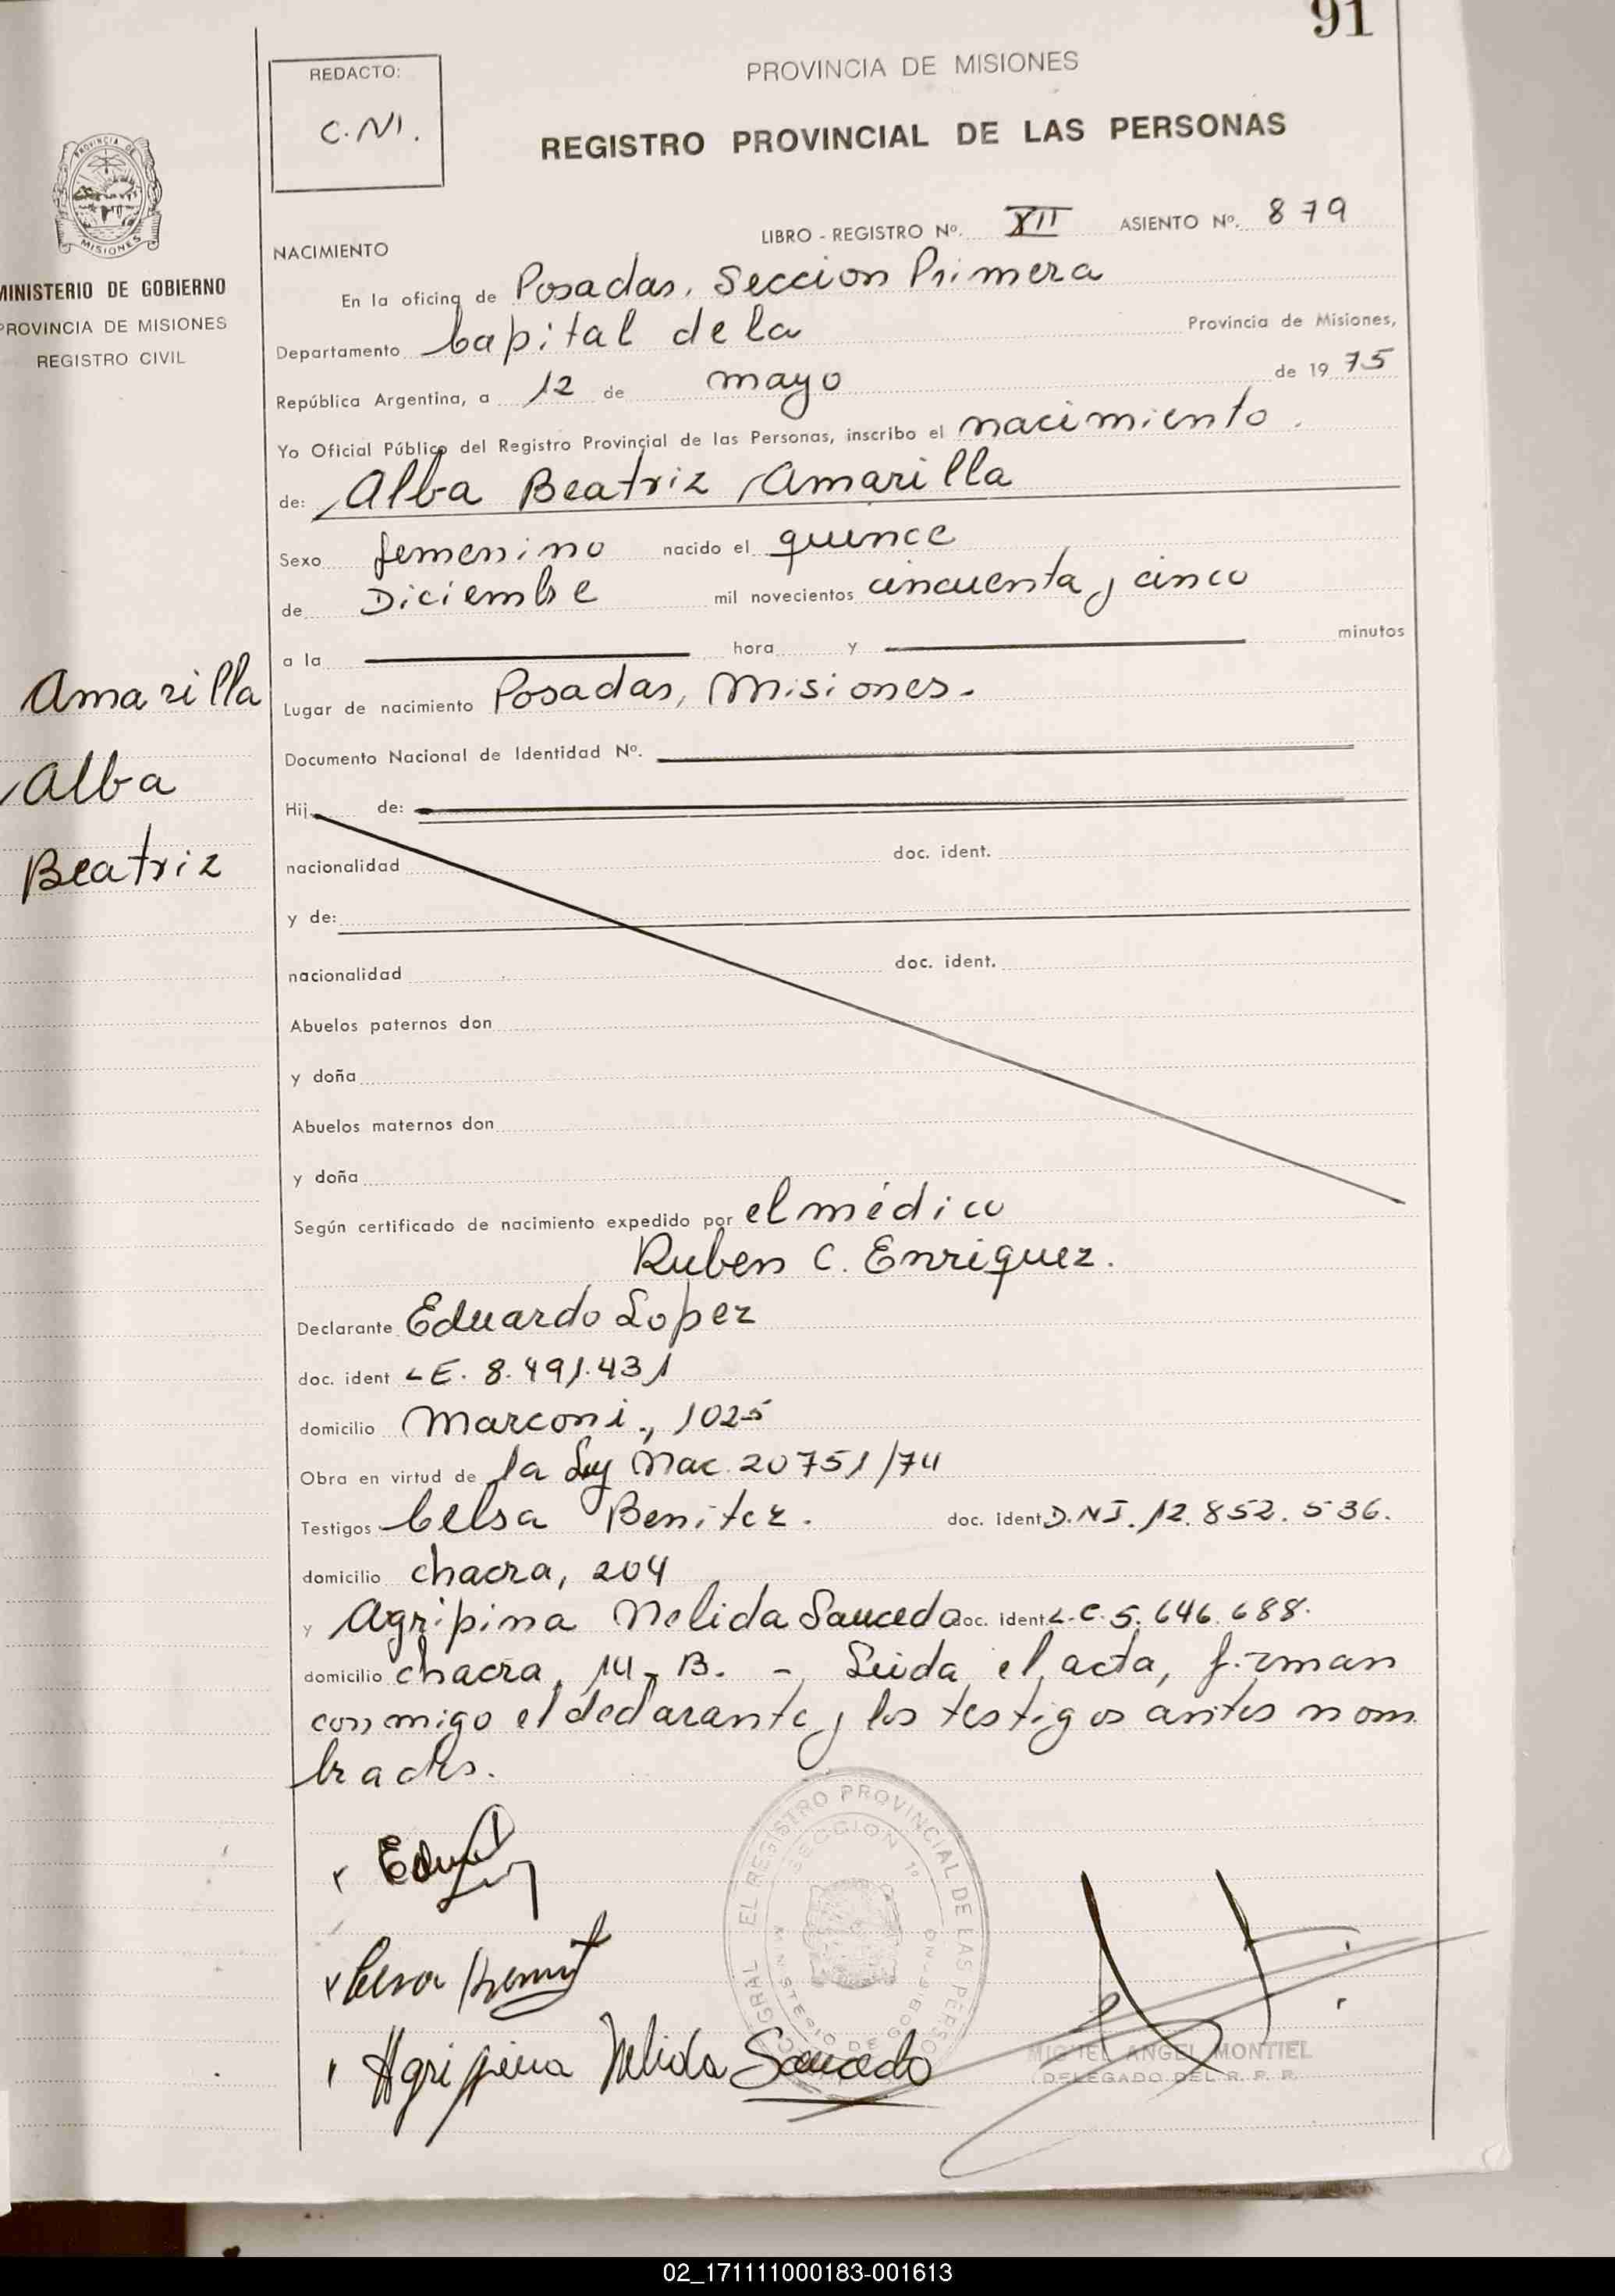 91
REDACTO:
C.NI.
PROVINCIA DE MISIONES
REGISTRO PROVINCIAL DE LAS PERSONAS
PROVINCIA DE
MISIONES
MINISTERIO DE GOBIERNO
PROVINCIA DE MISIONES
REGISTRO CIVIL
LIBRO - REGISTRO Nº. XII ASIENTO Nº. 879
NACIMIENTO
En la oficina de Posadas, Seccion Primera
Departamento Capital de la Provincia de Misiones,
República Argentina, a 12 de mayo de 19 75
Yo Oficial Público del Registro Provincial de las Personas, inscribo el nacimiento.
de: Alba Beatriz Amarilla
Sexo femenino nacido el quince
de Diciembre mil novecientos cincuenta y cinco
a la hora y minutos
Amarilla
Alba
Beatriz
Lugar de nacimiento Posadas, Misiones.
Documento Nacional de Identidad Nº.
Hij de:
nacionalidad doc. ident.
y de:
nacionalidad doc. ident.
Abuelos paternos don
y doña
Abuelos maternos don
y doña
Según certificado de nacimiento expedido por el médico
Ruben C. Enriquez.
Declarante Eduardo Lopez
doc. ident LE. 8.491.431
domicilio Marconi, 1025
Obra en virtud de la Ley Nac. 20751/74
Testigos Celsa Benitez. doc. ident D.NI. 12.852.536.
domicilio chacra, 204
y Agripina Nelida Saucedo doc. ident L.C. 5.646.688.
domicilio chacra, 14-B. - Leida el acta, firman
conmigo el declarante y los testigos antes nom
brados.
EL REGISTRO PROVINCIAL DE LAS PERSO
SECCION 1º
MINISTERIO DE GOBIERNO
Agripina Nelida Saucedo
MIGUEL ANGEL MONTIEL
DELEGADO DEL R. P. P.
02_171111000183-001613